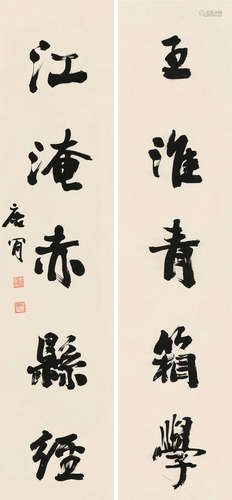 王淮青箱學
江淹赤縣經
唐肎